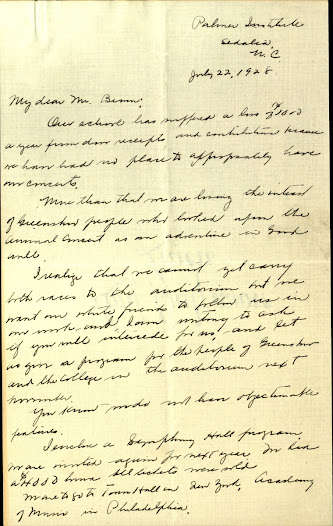 Palmer Institute
Sedalia,
N. C
July 22, 1928.
My dear Mr. Brown,
Our school has suffered a loss of $1000
a year from door receipts and contributions because
we have had no place to appropriately have
our concerts.
More than that we are losing the interest
of Greensboro people who looked upon the
annual concert as an adventure in Good
will.
I realize that we cannot yet carry
both races to the auditorium but we
want our white friends to follow us in
our work and I am writing to ask
if you will intercede for us, and let
us give a program for the people of Greensboro
and the College in the auditorium next
November.
You know we do not have objectionable
features.
I enclose a Symphony Hall program,
we are invited again for next year. We had
a $4000 house all tickets were sold
We are to go to Town Hall in New York, Academy
of Music in Philadelphia.